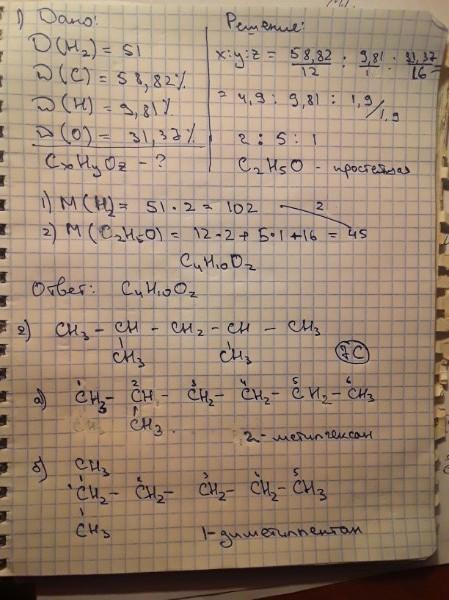 1) Дано:
D(H2) = 51
D(C) = 58,82%
D(H) = 9,81%
D(O) = 31,37%
CxHyOz - ?
Решение:
x:y:z = 58,82/12 : 9,81/1 : 31,37/16 =
= 4,9 : 9,81 : 1,9 /1,9
2 : 5 : 1
C2H5O - простейшая
1) M(H2) = 51 · 2 = 102
2
2) M(C2H5O) = 12·2 + 5·1 + 16 = 45
C4H10O2
Ответ: C4H10O2
2) CH3 - CH - CH2 - CH - CH3
CH3 CH3
7C
а) 1CH3 - 2CH - 3CH2 - 4CH2 - 5CH2 - 6CH3
CH3
2-метилгексан
б) CH3
1CH2 - 2CH2 - 3CH2 - 4CH2 - 5CH3
CH3
1-диметилпентан